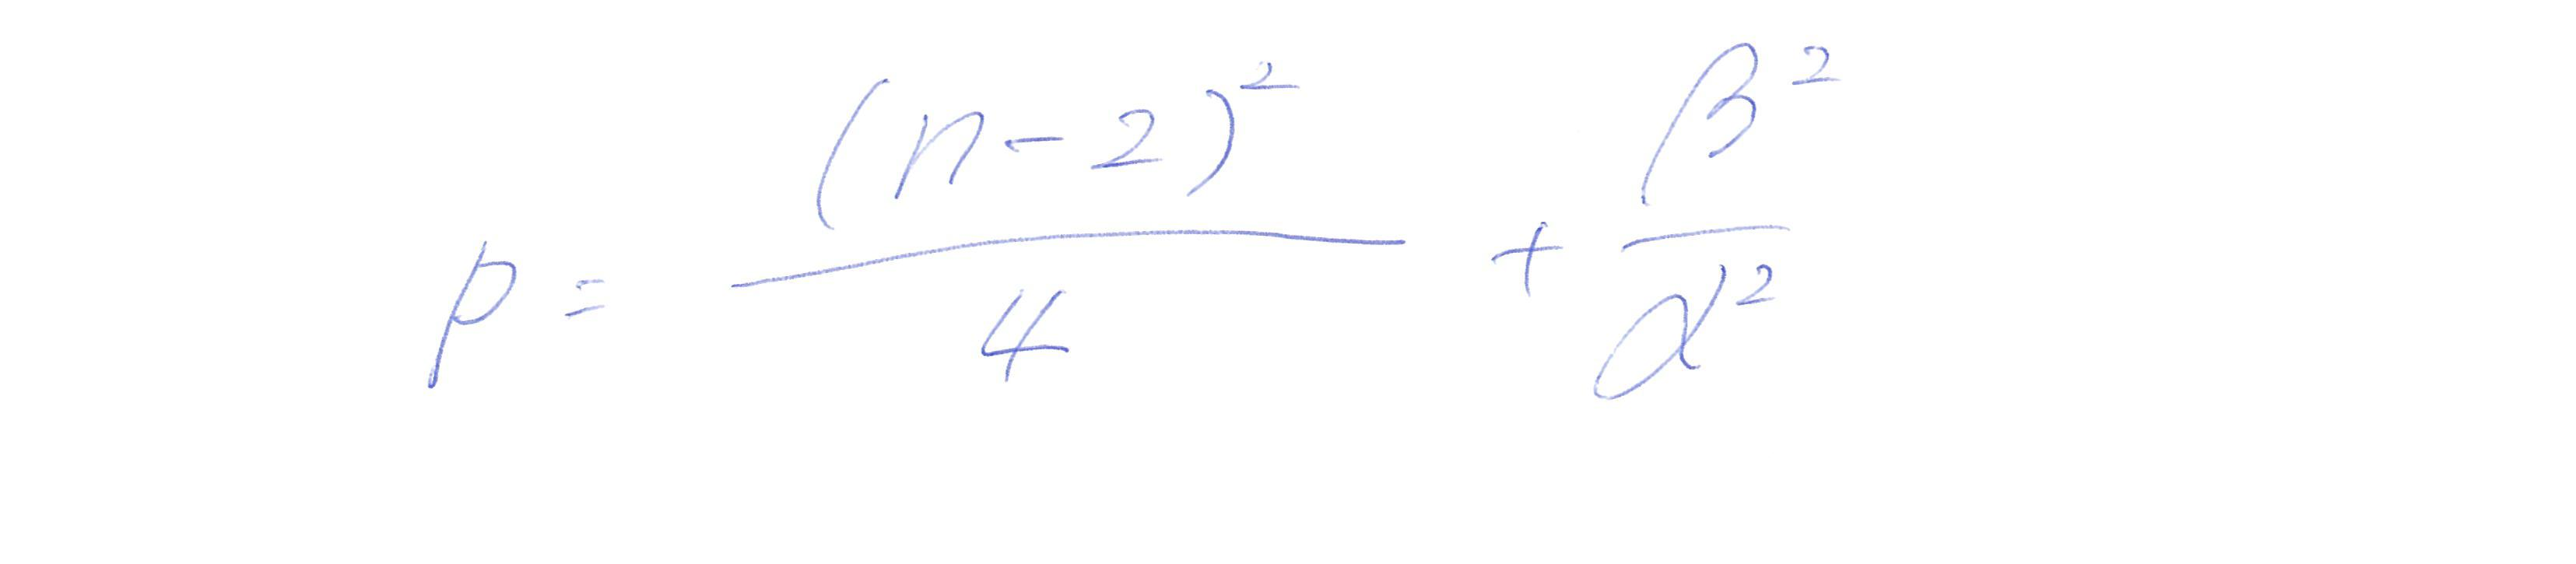 p = \frac{(n-2)^2}{4} + \frac{\beta^2}{\alpha^2}